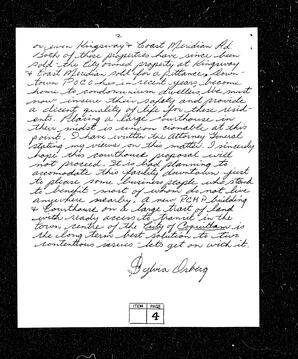 2
or even Kingsway & Coast Meridian Rd.
Both of these properties have since been
sold - the City owned property at Kingsway
& Coast Meridian sold for a pittance. Down-
town POCO has in recent years become
home to condominium dwellers. We must
now insure their safety and provide
a decent quality of life for these resid-
ents. Placing a large courthouse in
their midst is unconscionable at this
point. I have written the Attorney General
stating my views on this matter. I sincerely
hope this courthouse proposal will
not proceed. It is bad planning to
accomodate this facility downtown just
to please some business people who stand
to benefit - most of whom do not live
anywhere nearby. A new RCMP building
& Courthouse on a large tract of land
with ready access to transit in the
town centre of the City of Coquitlam is
the long term best solution to two
contentious issues - lets get on with it.
Sylvia
ITEM PAGE
4